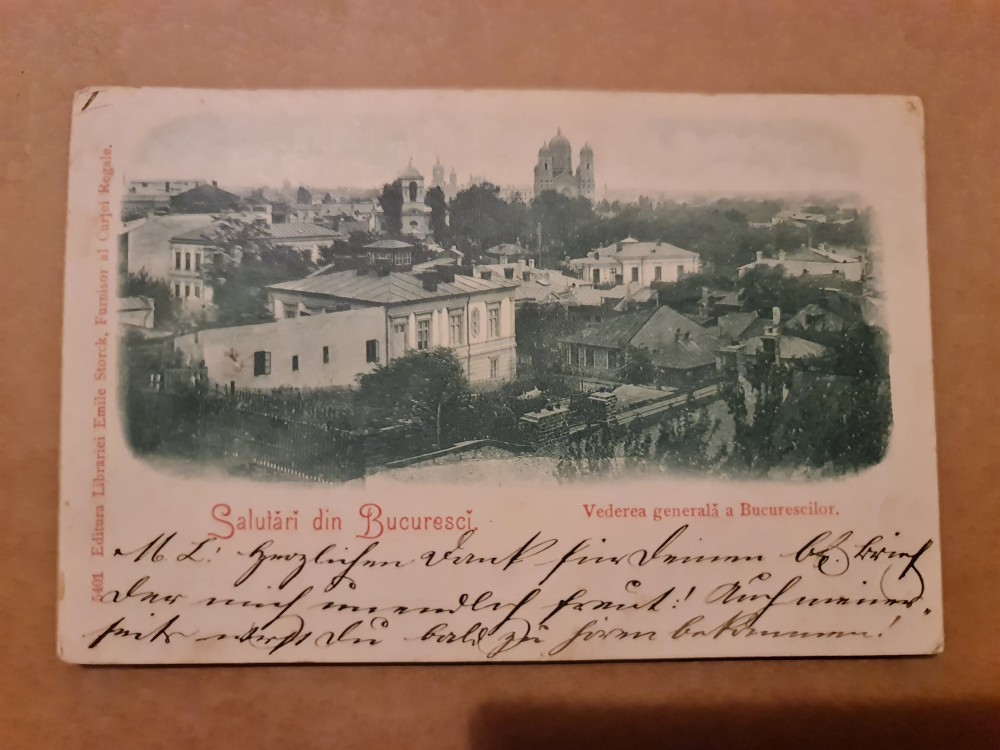 5401 Editura Librariei Emile Storck, Furnisor al Curței Regale.
Salutări din Bucurescĭ.
Vederea generală a Bucurescilor.
M. L! Herzlichen Dank für Deinen lb. Brief
der mich unendlich freut! Auch meiner-
seits wirst Du bald zu hören bekommen!